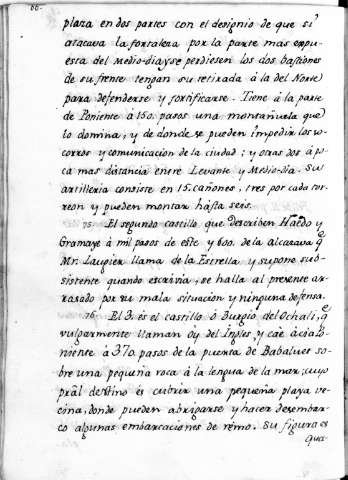 66.
plaza en dos partes con el designio de que si
atacava la fortaleza por la parte mas expu-
esta del Medio-dia, se perdiesen los dos bastiones
de su frente tengan su retirada à la del Norte
para defenderse y fortificarse. Tiene á la parte
de Poniente à 150. pasos una montañuela que
lo domina, y de donde se pueden impedir los so-
corros y comunicacion de la ciudad; y otras dos á po-
ca mas distancia entre Levante y Medio-dia. Su
artilleria consiste en 15. cañones, tres por cada tor-
reon y pueden montar hasta seis.
75. El segundo castillo que describen Haedo y
Gramaye à mil pasos de este y 600. de la alcazava q̃
Mr. Laugier llama de la Estrella, y supone sub-
sistente quando escrivia, se halla al presente ar-
rasado por su mala situacion y ninguna defensa.
76. El 3. es el castillo ò Burgio del Ochali, q̃
vulgarmente llaman oy del Ingles y cae ácia Po-
niente à 370. pasos de la puerta de Babaluet so-
bre una pequeña roca à la lengua de la mar; cuyo
pral destino és cubrir una pequeña playa ve-
cina, donde pueden abrigarse y hacer desembar-
co algunas embarcaciones de remo. Su figura es
qua-